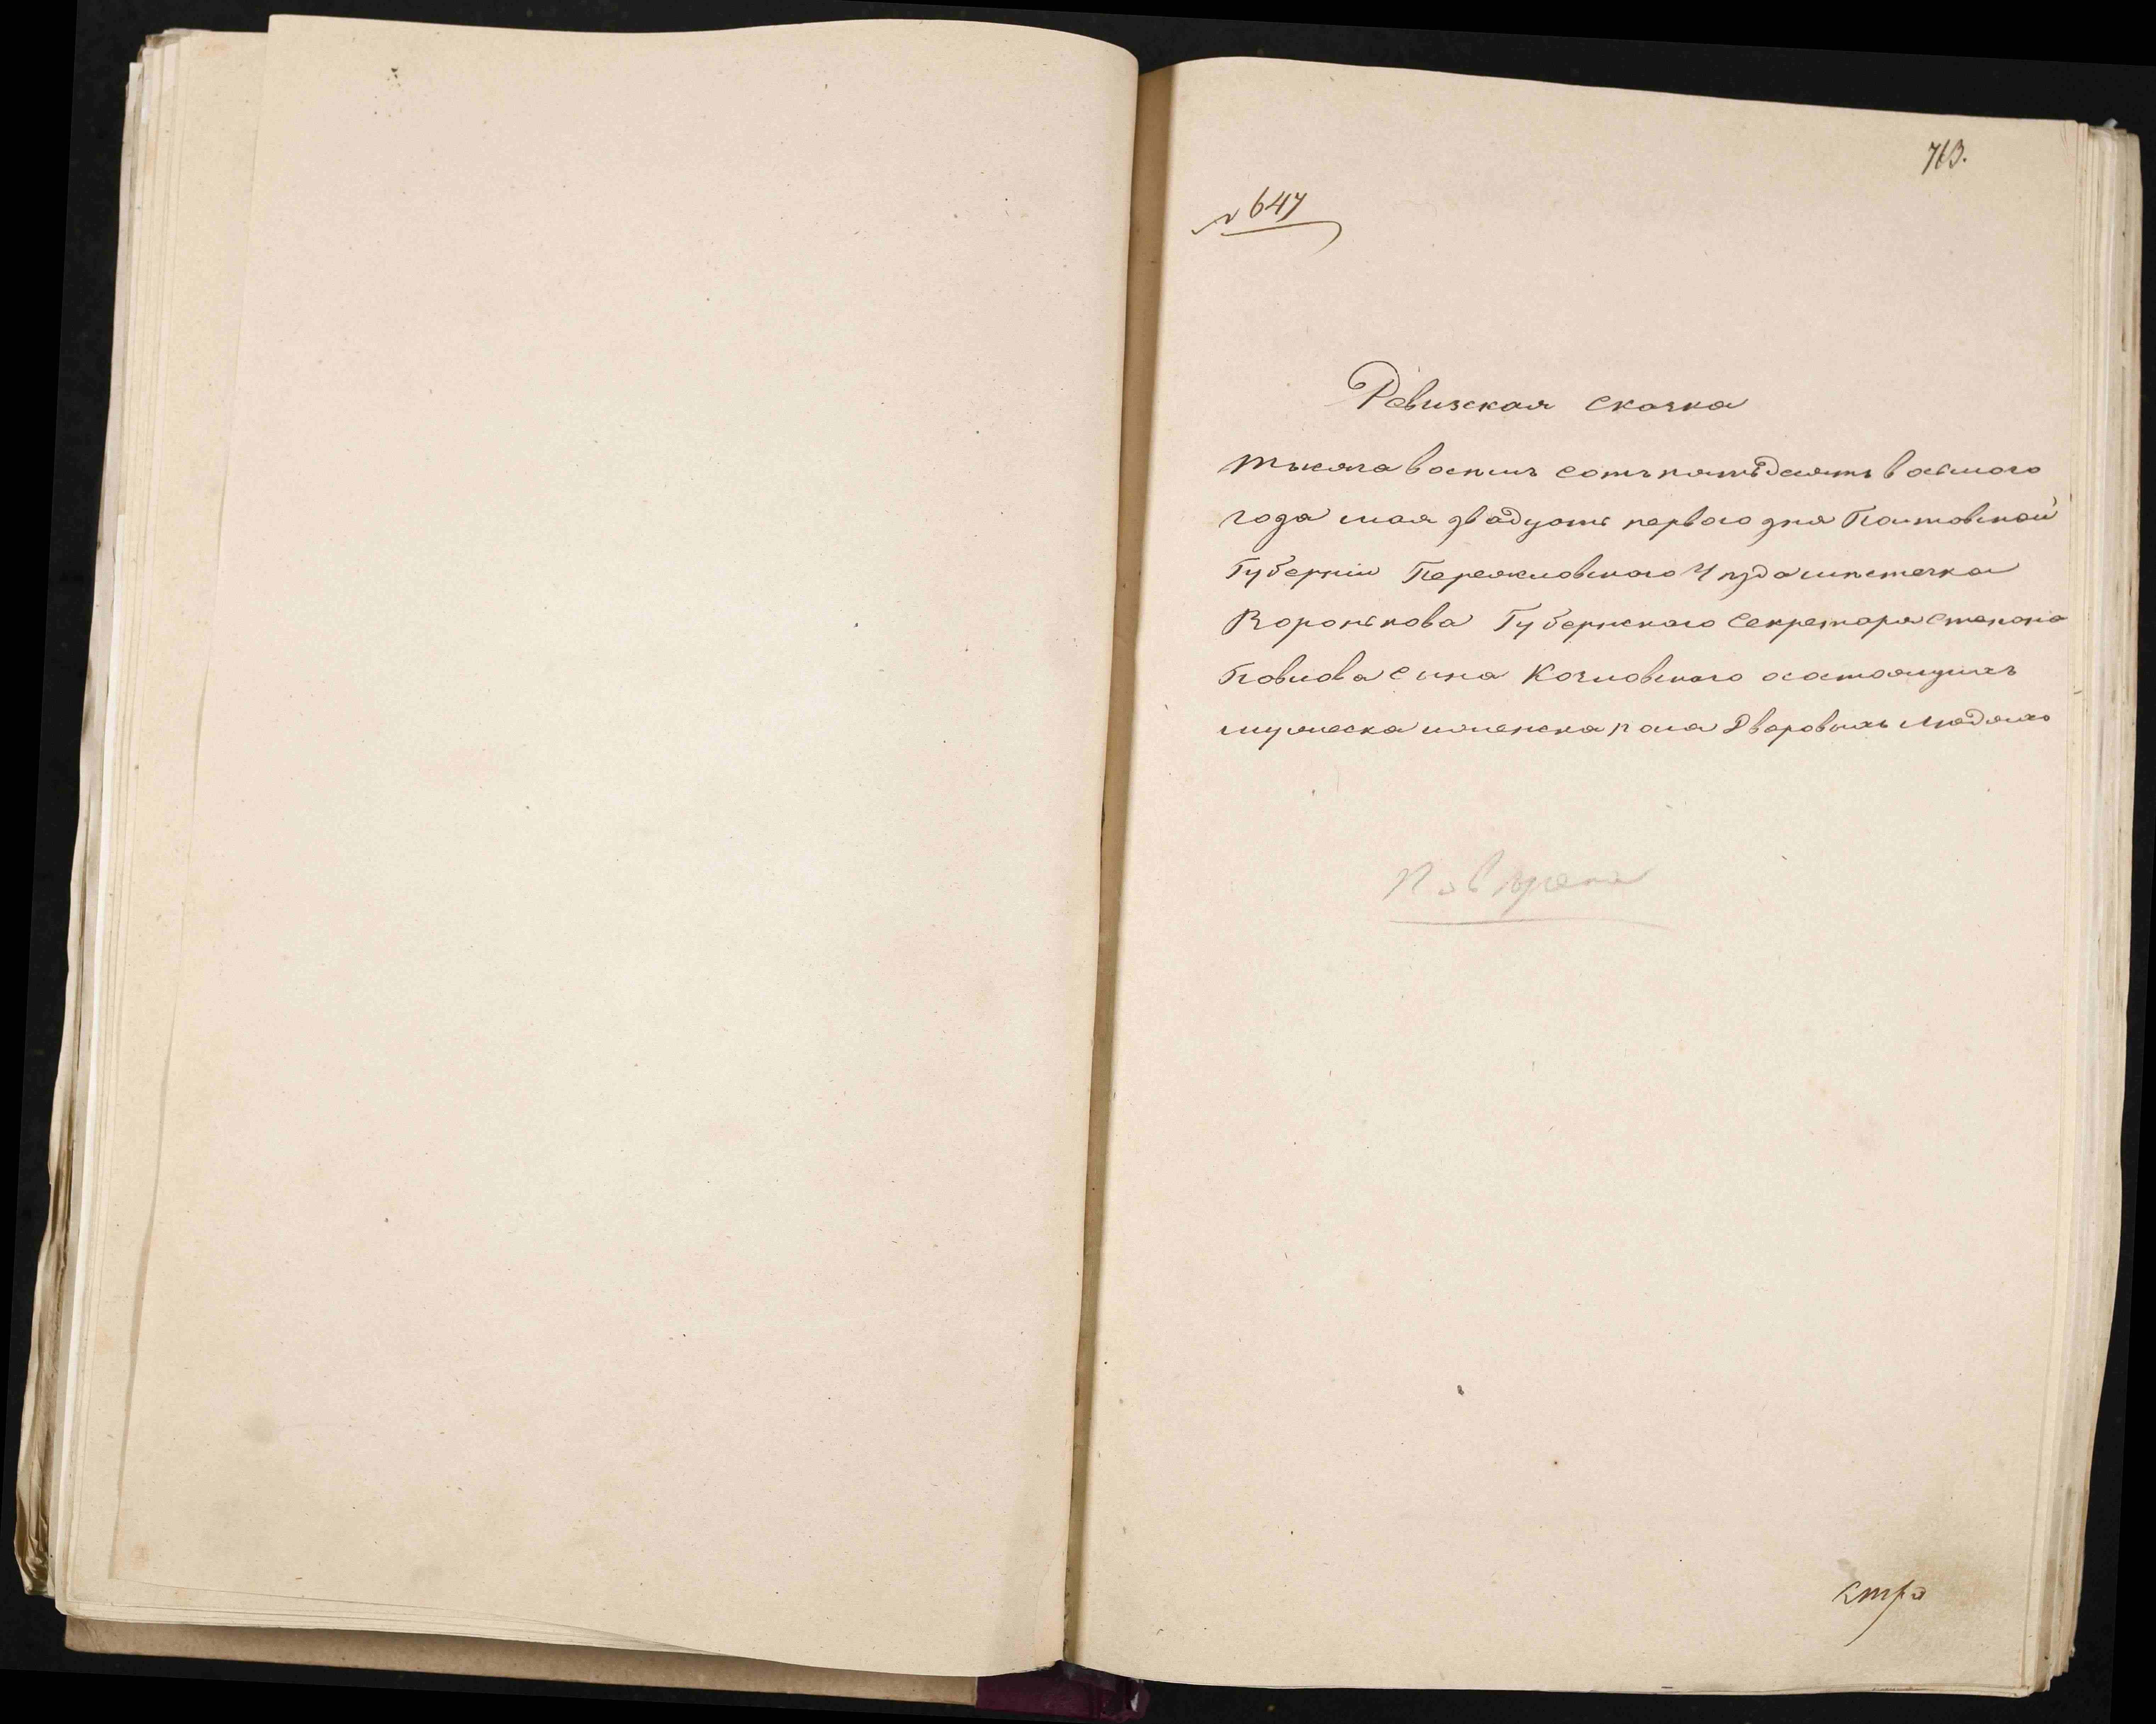 713.
№ 647
Ревизская сказка
тысяча восемь сотъ пятьдесятъ восьмого
года мая двадцать первого дня Полтавской
Губерніи Переяславского Уѣзда мѣстечка
Воронькова Губернского Секретаря Степана
Павлова сина Козловского о состоящихъ
мужеска и женска пола Дворовыхъ Людяхъ